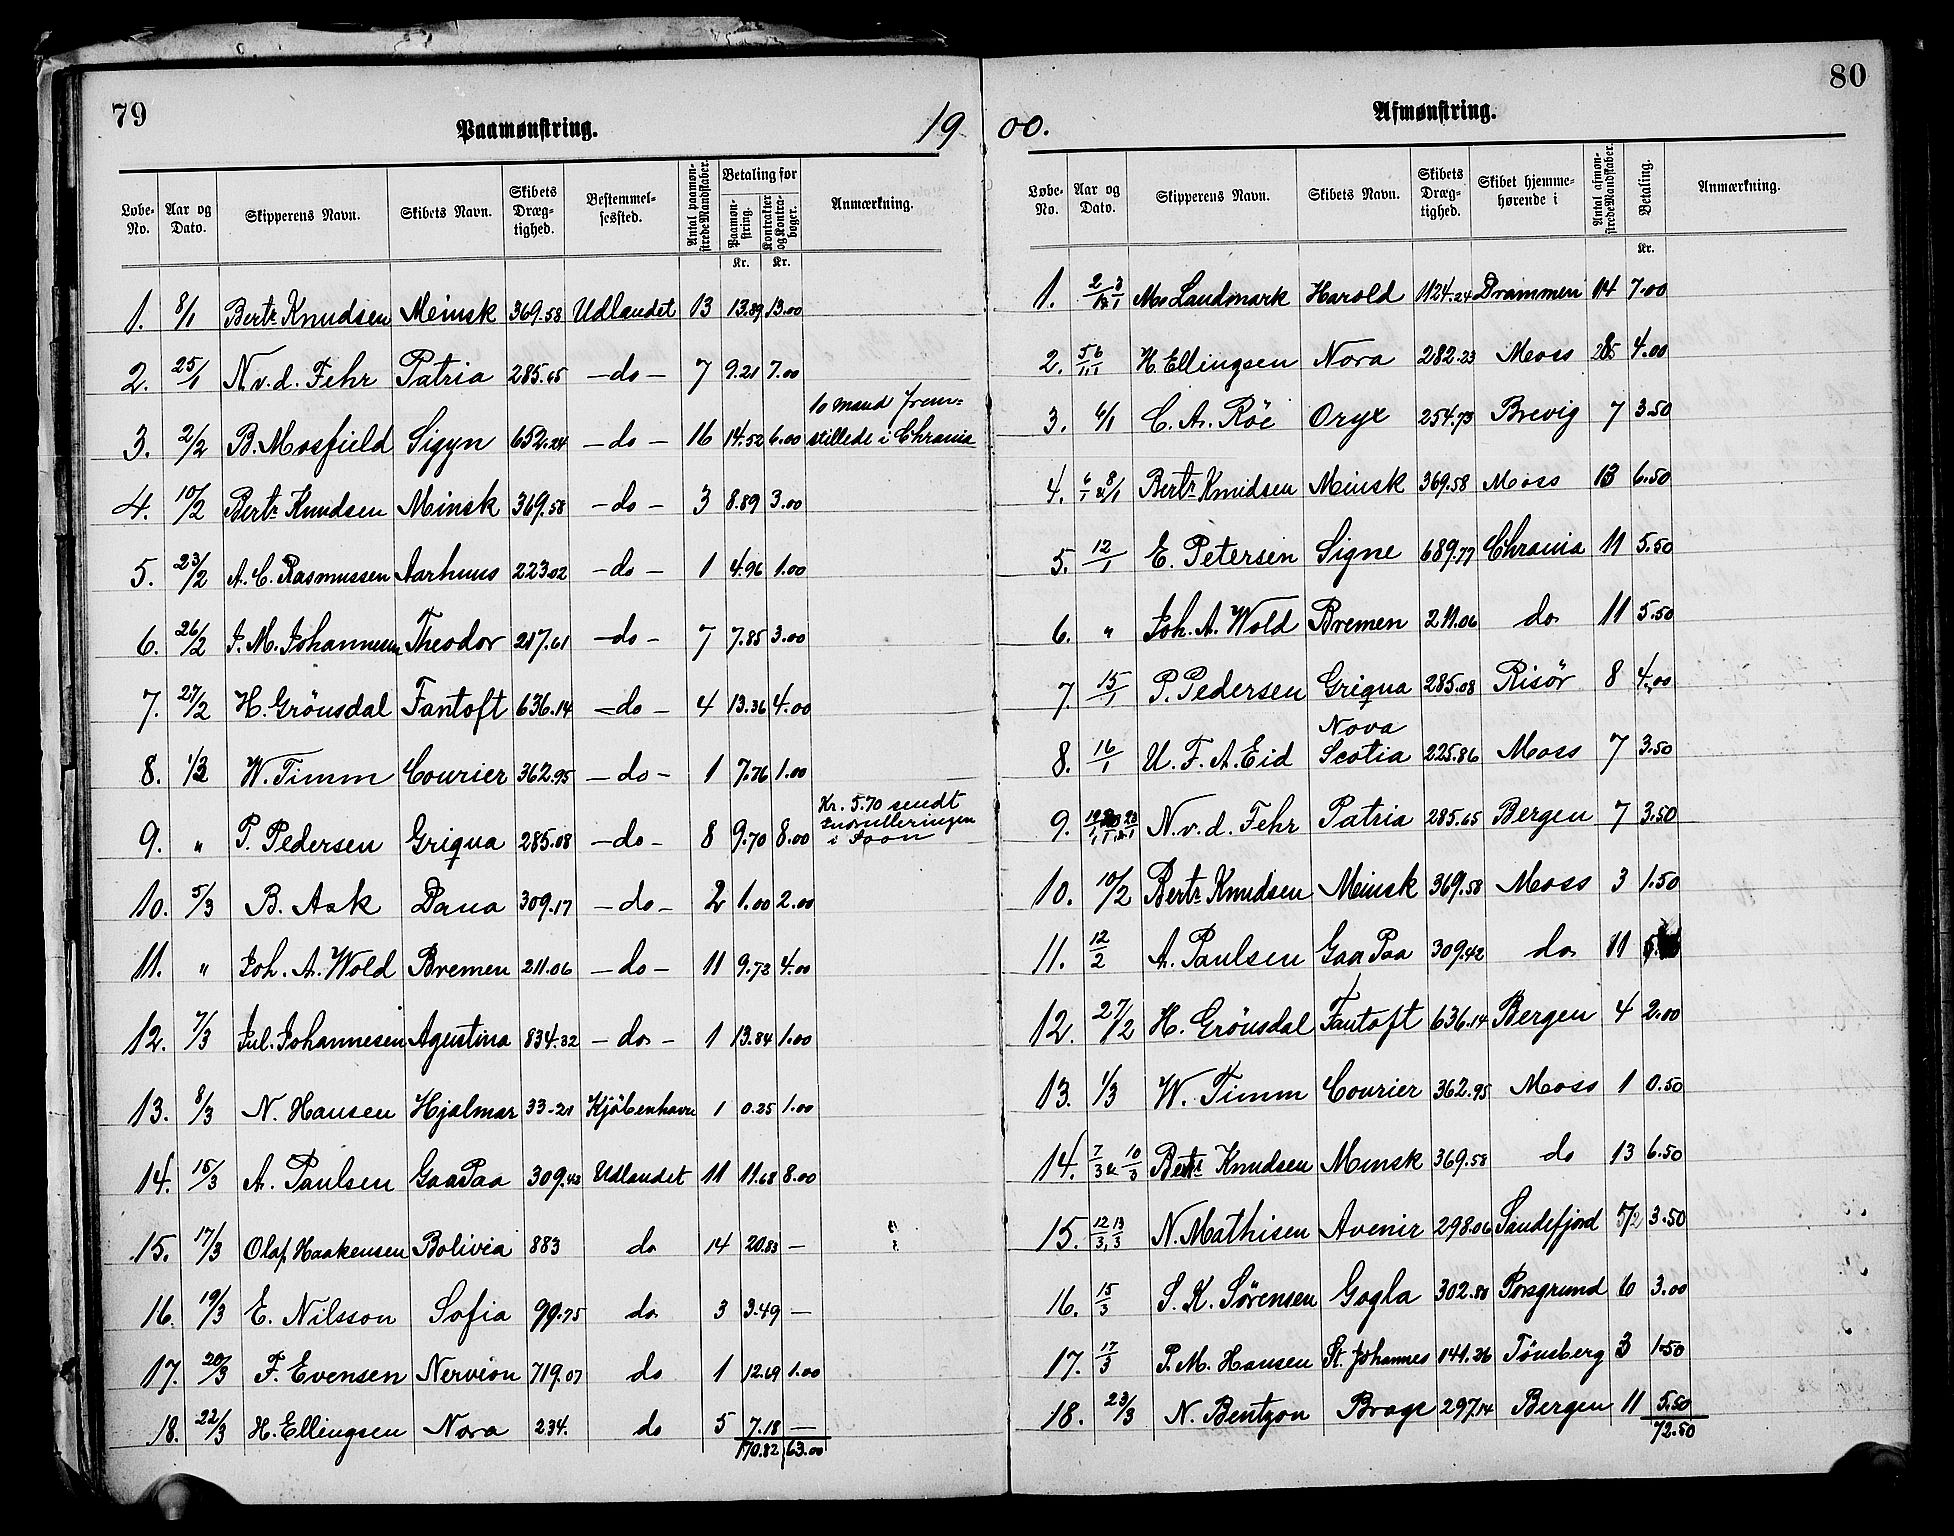 79
Paamønstring.
19
Løbe-No. Aar og Dato. Skipperens Navn. Skibets Navn. Skibets Dræg-tighed. Bestemmel-sessted. Antal paamøn-strede Mandskaber. Betaling for Paamøn-string. Kr. Kontrakter og Kontra-bøger. Kr. Anmærkning.
1. 8/1 Bertr Knudsen Meinsk 369.58 Udlandet 13 13.89 13.00
2. 25/1 N.v.d. Fehr Patria 285.65 - do - 7 9.21 7.00
3. 2/2 B. Mosfield Sigyn 652.24 - do - 16 14.52 6.00 10 mand frem=
stillede i Chrania
4. 10/2 Bertr Knudsen Meinsk 369.58 - do - 3 8.89 3.00
5. 23/2 A. C. Rasmussen Aarhuus 223.02 - do - 1 4.96 1.00
6. 26/2 J. M. Johannesen Theodor 217.61 - do - 7 7.85 3.00
7. 27/2 H. Grönsdal Fantoft 636.14 - do - 4 13.36 4.00
8. 1/3 W. Timm Courier 362.95 - do - 1 7.76 1.00
9. " P. Pedersen Griqua 285.08 - do - 8 9.70 8.00 Kr. 5.70 sendt
Indrulleringen
i Soon
10. 5/3 B. Ask Dana 309.17 - do - 2 1.00 2.00
11. " Joh. A. Wold Bremen 211.06 - do - 11 9.72 4.00
12. 7/3 Jul. Johannesen Agustina 834.32 - do - 1 13.84 1.00
13. 8/3 N. Hansen Hjalmar 33-21 Kjöbenhavn 1 0.25 1.00
14. 15/3 A. Paulsen GaaPaa 309.42 Udlandet 11 11.68 8.00
15. 17/3 Olaf Haakensen Bolivia 883 do 14 20.83 —
16. 19/3 E. Nilsson Sofia 99.75 do 3 3.49 —
17. 20/3 F. Evensen Nervion 719.07 do 1 12.69 1.00
18. 22/3 H. Ellingsen Nora 234. do 5 7.18 —
170.82 63.00
80
Afmønstring.
00.
Løbe-No. Aar og Dato. Skipperens Navn. Skibets Navn. Skibets Dræg-tighed. Skibet hjemme-hørende i Antal afmøn-strede Mandskaber. Betaling. Kr. Anmærkning.
1. Landmark Harold 1124.24 Drammen 14 7.00
2. 5/1 6/1 H. Ellingsen Nora 282.23 Moss 4.00
3. 6/1 C. A. Röe Oryx 254.73 Brevig 7 3.50
4. 6/1 & 8/1 Bertr Knudsen Meinsk 369.58 Moss 13 6.50
5. 12/1 E. Petersen Signe 689.77 Chrania 11 5.50
6. " Joh. A. Wold Bremen 211.06 do 11 5.50
7. 15/1 P. Pedersen Griqua 285.08 Risör 8 4.00
8. 16/1 U. F. A. Eid Nova
Scotia 225.86 Moss 7 3.50
9. N. v. d. Fehr Patria 285.65 Bergen 7 3.50
10. 10/2 Bertr Knudsen Meinsk 369.58 Moss 3 1.50
11. 12/2 A. Paulsen Gaa Paa 309.42 do 11
12. 27/2 H. Grönsdal Fantoft 636.14 Bergen 4 2.00
13. 1/3 W. Timm Courier 362.95 Moss 1 0.50
14. 7/3 & 10/3 Bertr Knudsen Mensk 369.58 do 13 6.50
15. 12/3, 13/3 N. Mathisen Avenir 298.06 Sandefjord 5/2 3.50
16. 15/3 S. K. Sörensen Gogla 302.80 Porsgrund 6 3.00
17. 17/3 P. M. Hansen St. Johannes 141.26 Tönsberg 3 1.50
18. 23/3 N. Bentzon Brage 297.14 Bergen 11 5.50
72.50